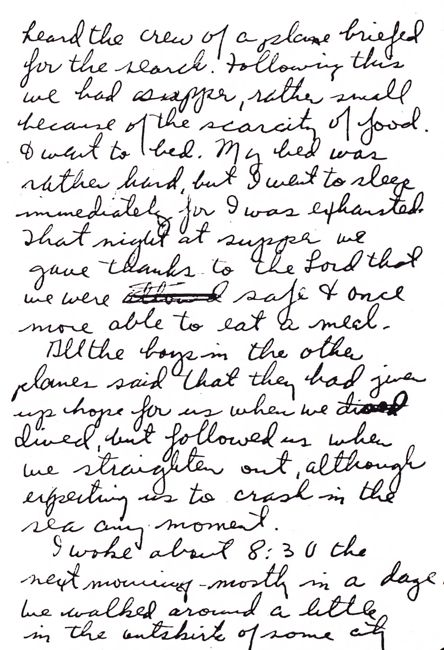 heard the crew of a plane briefed
for the search. Following this
we had a supper, rather small
because of the scarcity of food.
& went to bed. My bed was
rather hard, but I went to sleep
immediately for I was exhausted.
That night at supper we
gave thanks to the Lord that
we were safe & once
more able to eat a meal.
All the boys in the other
planes said that they had given
up hope for us when we dived
dived, but followed us when
we straighten out, although
expecting us to crash in the
sea any moment.
I woke about 8:30 the
next morning - mostly in a daze.
we walked around a little
in the outskirts of some city